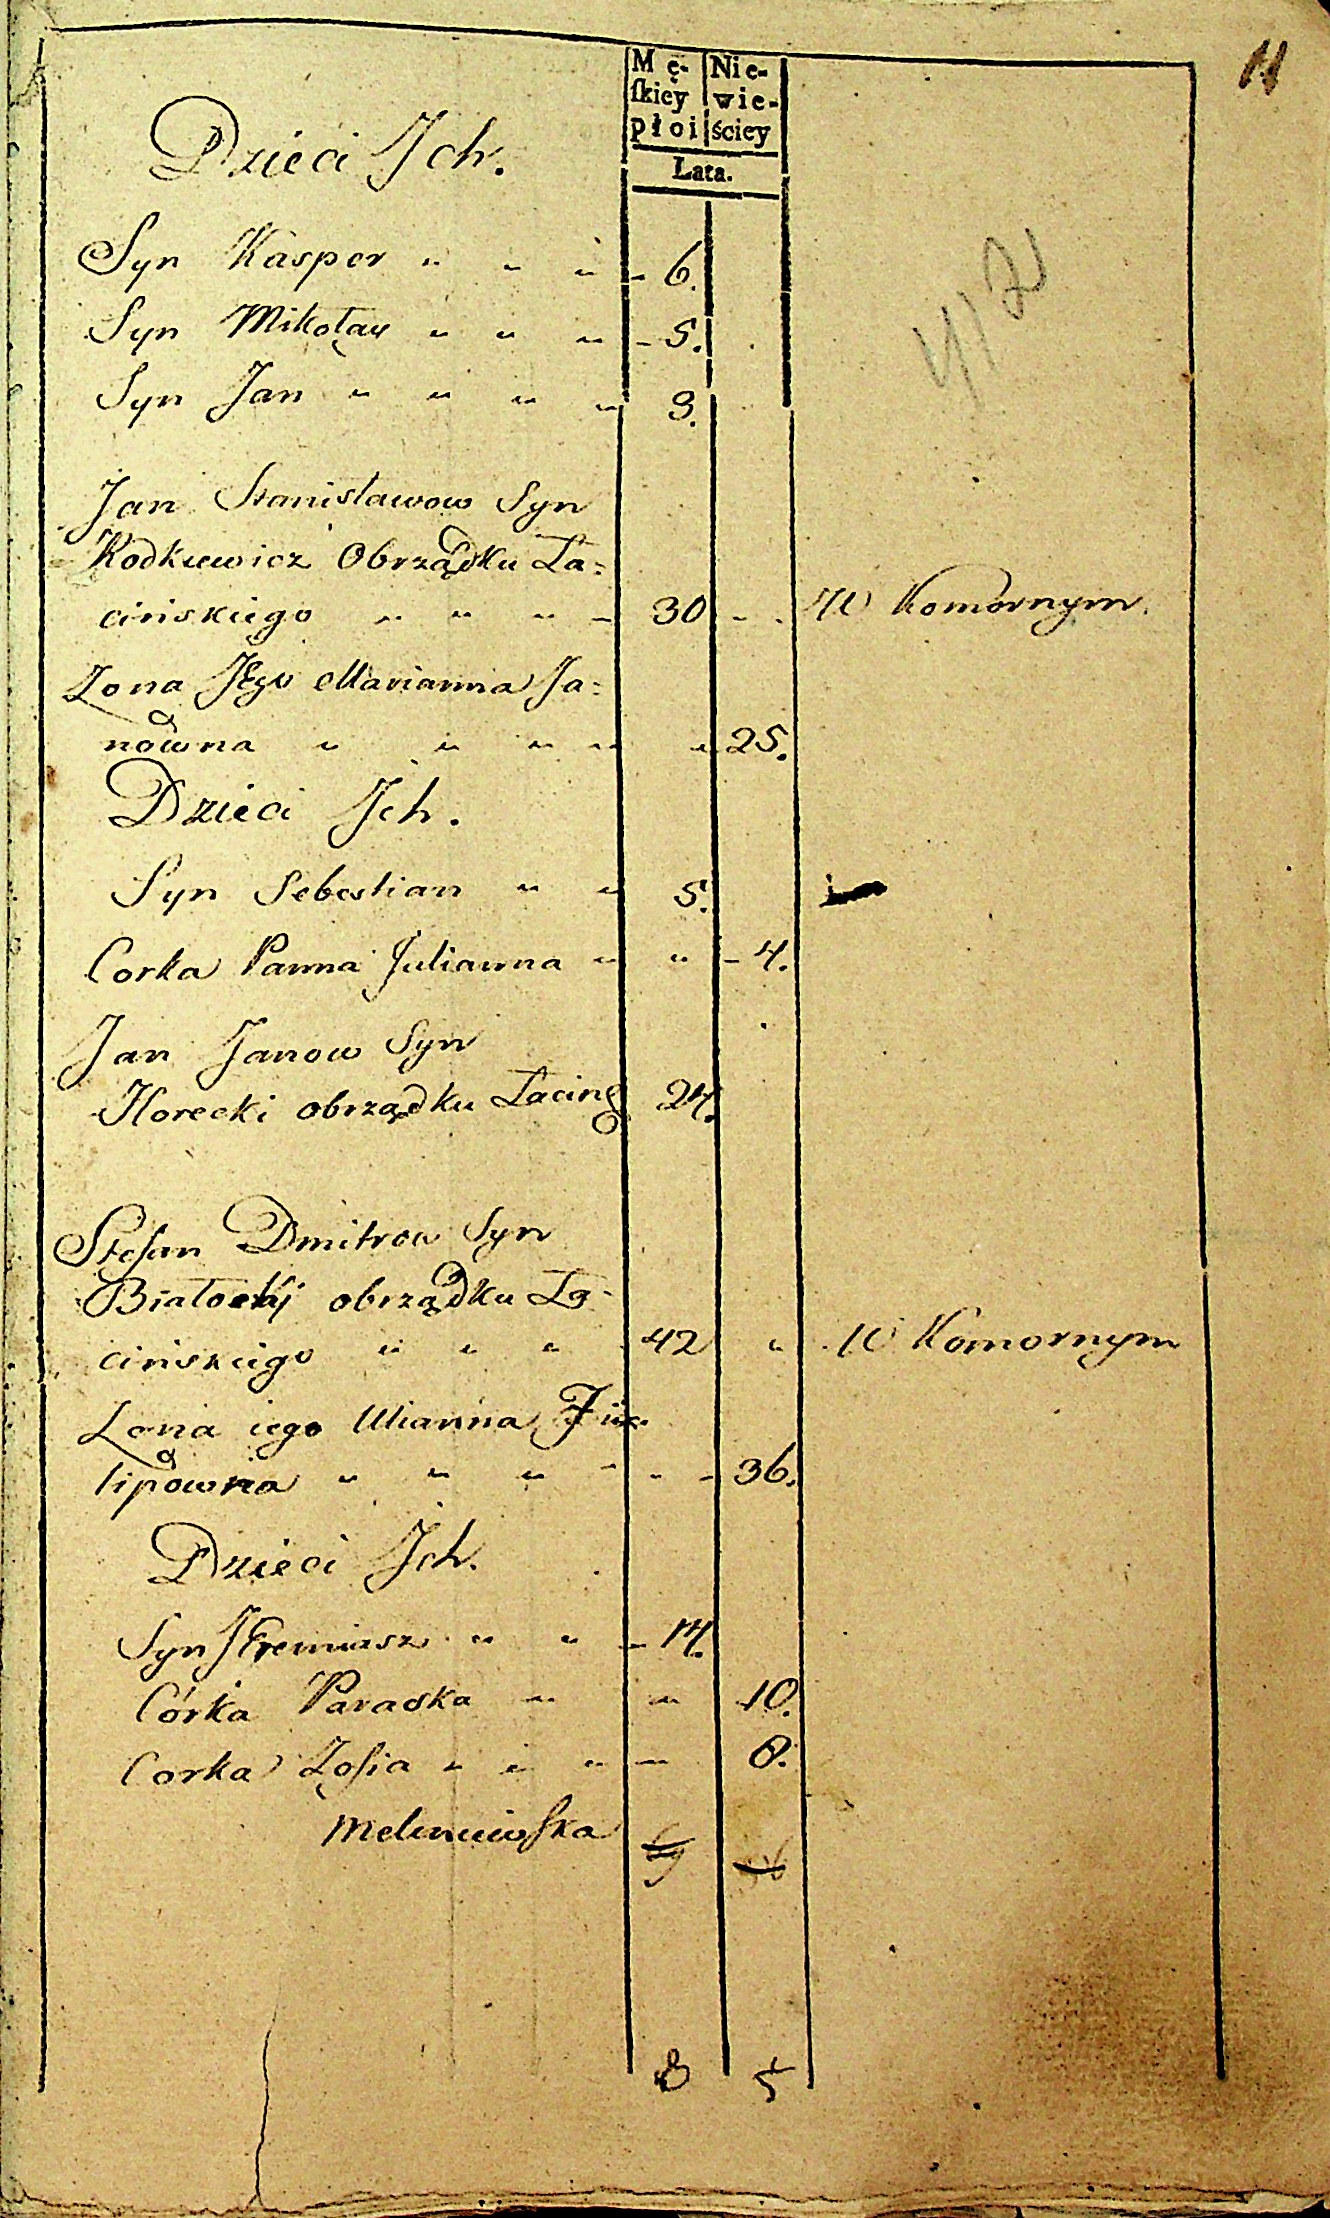 11
Mę- Nie-
ſkiey wie-
płoi ściey
Lata.
Dzieci Jch.
Syn Kasper " " " - 6.
Syn Mikołay " " " - 5.
Syn Jan " " " " 3.
Jan Stanisławow Syn
Rodkiewicz Obrządku Ła=
cińskiego " " " - 30 - . W Komornym.
Żona JEgo Marianna Ja=
nówna " " " " " 25.
Dzieci Jch.
Syn Sebestian " " 5.
Corka Panna Julianna " " - 4.
Jan Janow Syn
Horecki obrządku Łacing 24.
Stefan Dmitrow Syn
Białocki obrządku Ła-
cińskiego " " " 42 " W Komornym
Żona iego Ulianna Fi-
lipowna " " " - " - 36.
Dzieci Jch.
Syn JEremiasz " " - 14.
Córka Paraska " " 10.
Corka Zofia " " " - 8.
8 5